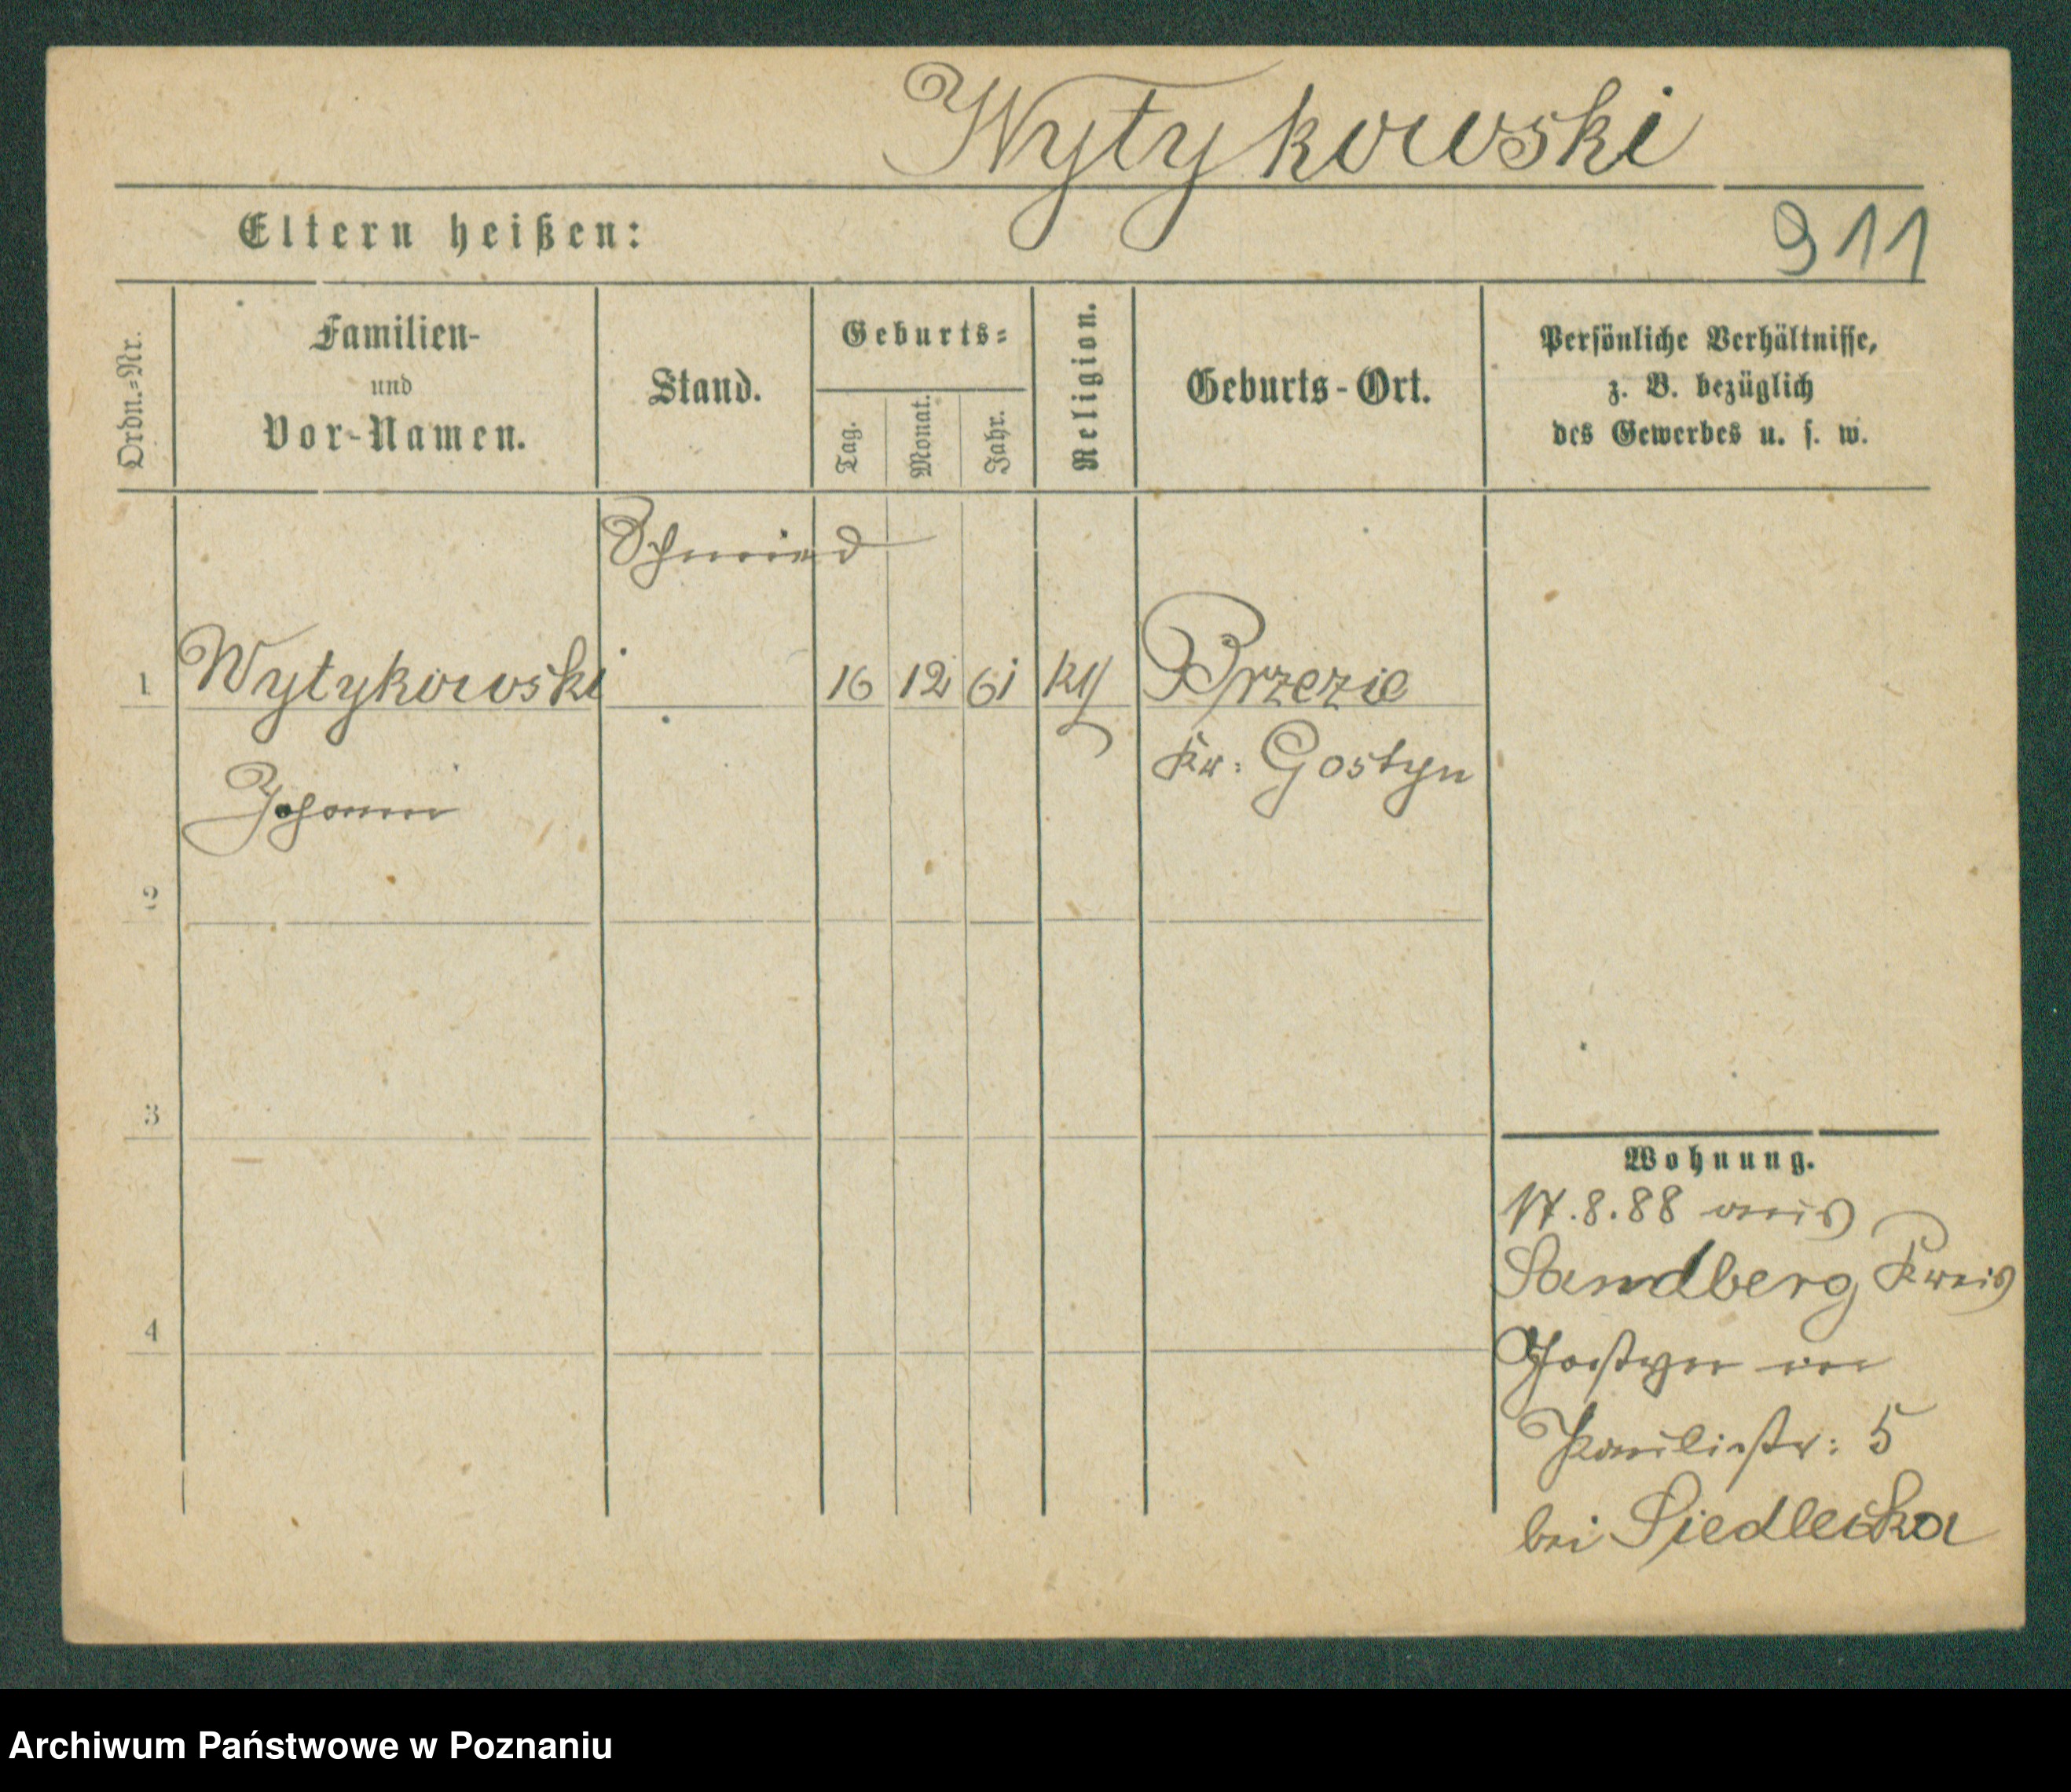 Wytykowski
Eltern heißen:
911
Ordn.=Nr.
Familien-
und
Vor-Namen.
Stand.
Geburts=
Tag.
Monat.
Jahr.
Religion.
Geburts-Ort.
Persönliche Verhältnisse,
z. B. bezüglich
des Gewerbes u. s. w.
Schmied
1 Wytykowski 16 12 61 Brzezie
Johann Kr: Gostyn
2
3
4
Wohnung.
17.8.88 aus
Sandberg Kreis
Gostyn in
5
bei Siedlecka
Archiwum Państwowe w Poznaniu